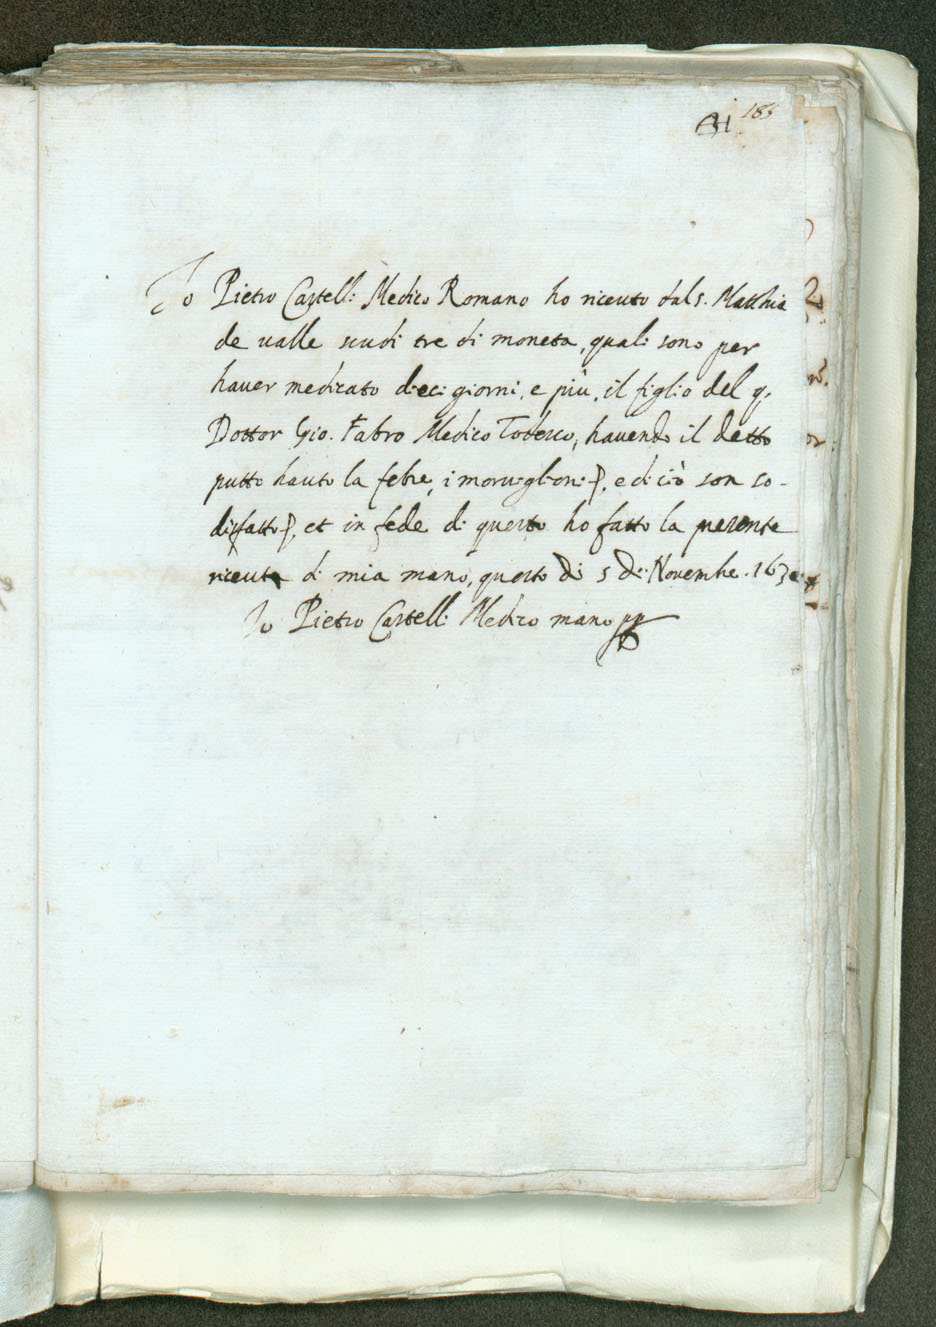 31 185
Io Pietro Castelli Medico Romano ho riceuto dal s. Matthia
de ualle scudi tre di moneta, quali sono per
hauer medicato dieci giorni, e più, il figlio del q.
Dottor Gio. Fabro Medico Todesco, hauendo il detto
putto hauto la febre, i moruiglioni, e di ciò son so-
disfatto, et in fede di questo ho fatto la presente
riceuta di mia mano, questo dì 5 di Novembre . 1630
Io Pietro Castelli Medico mano pp